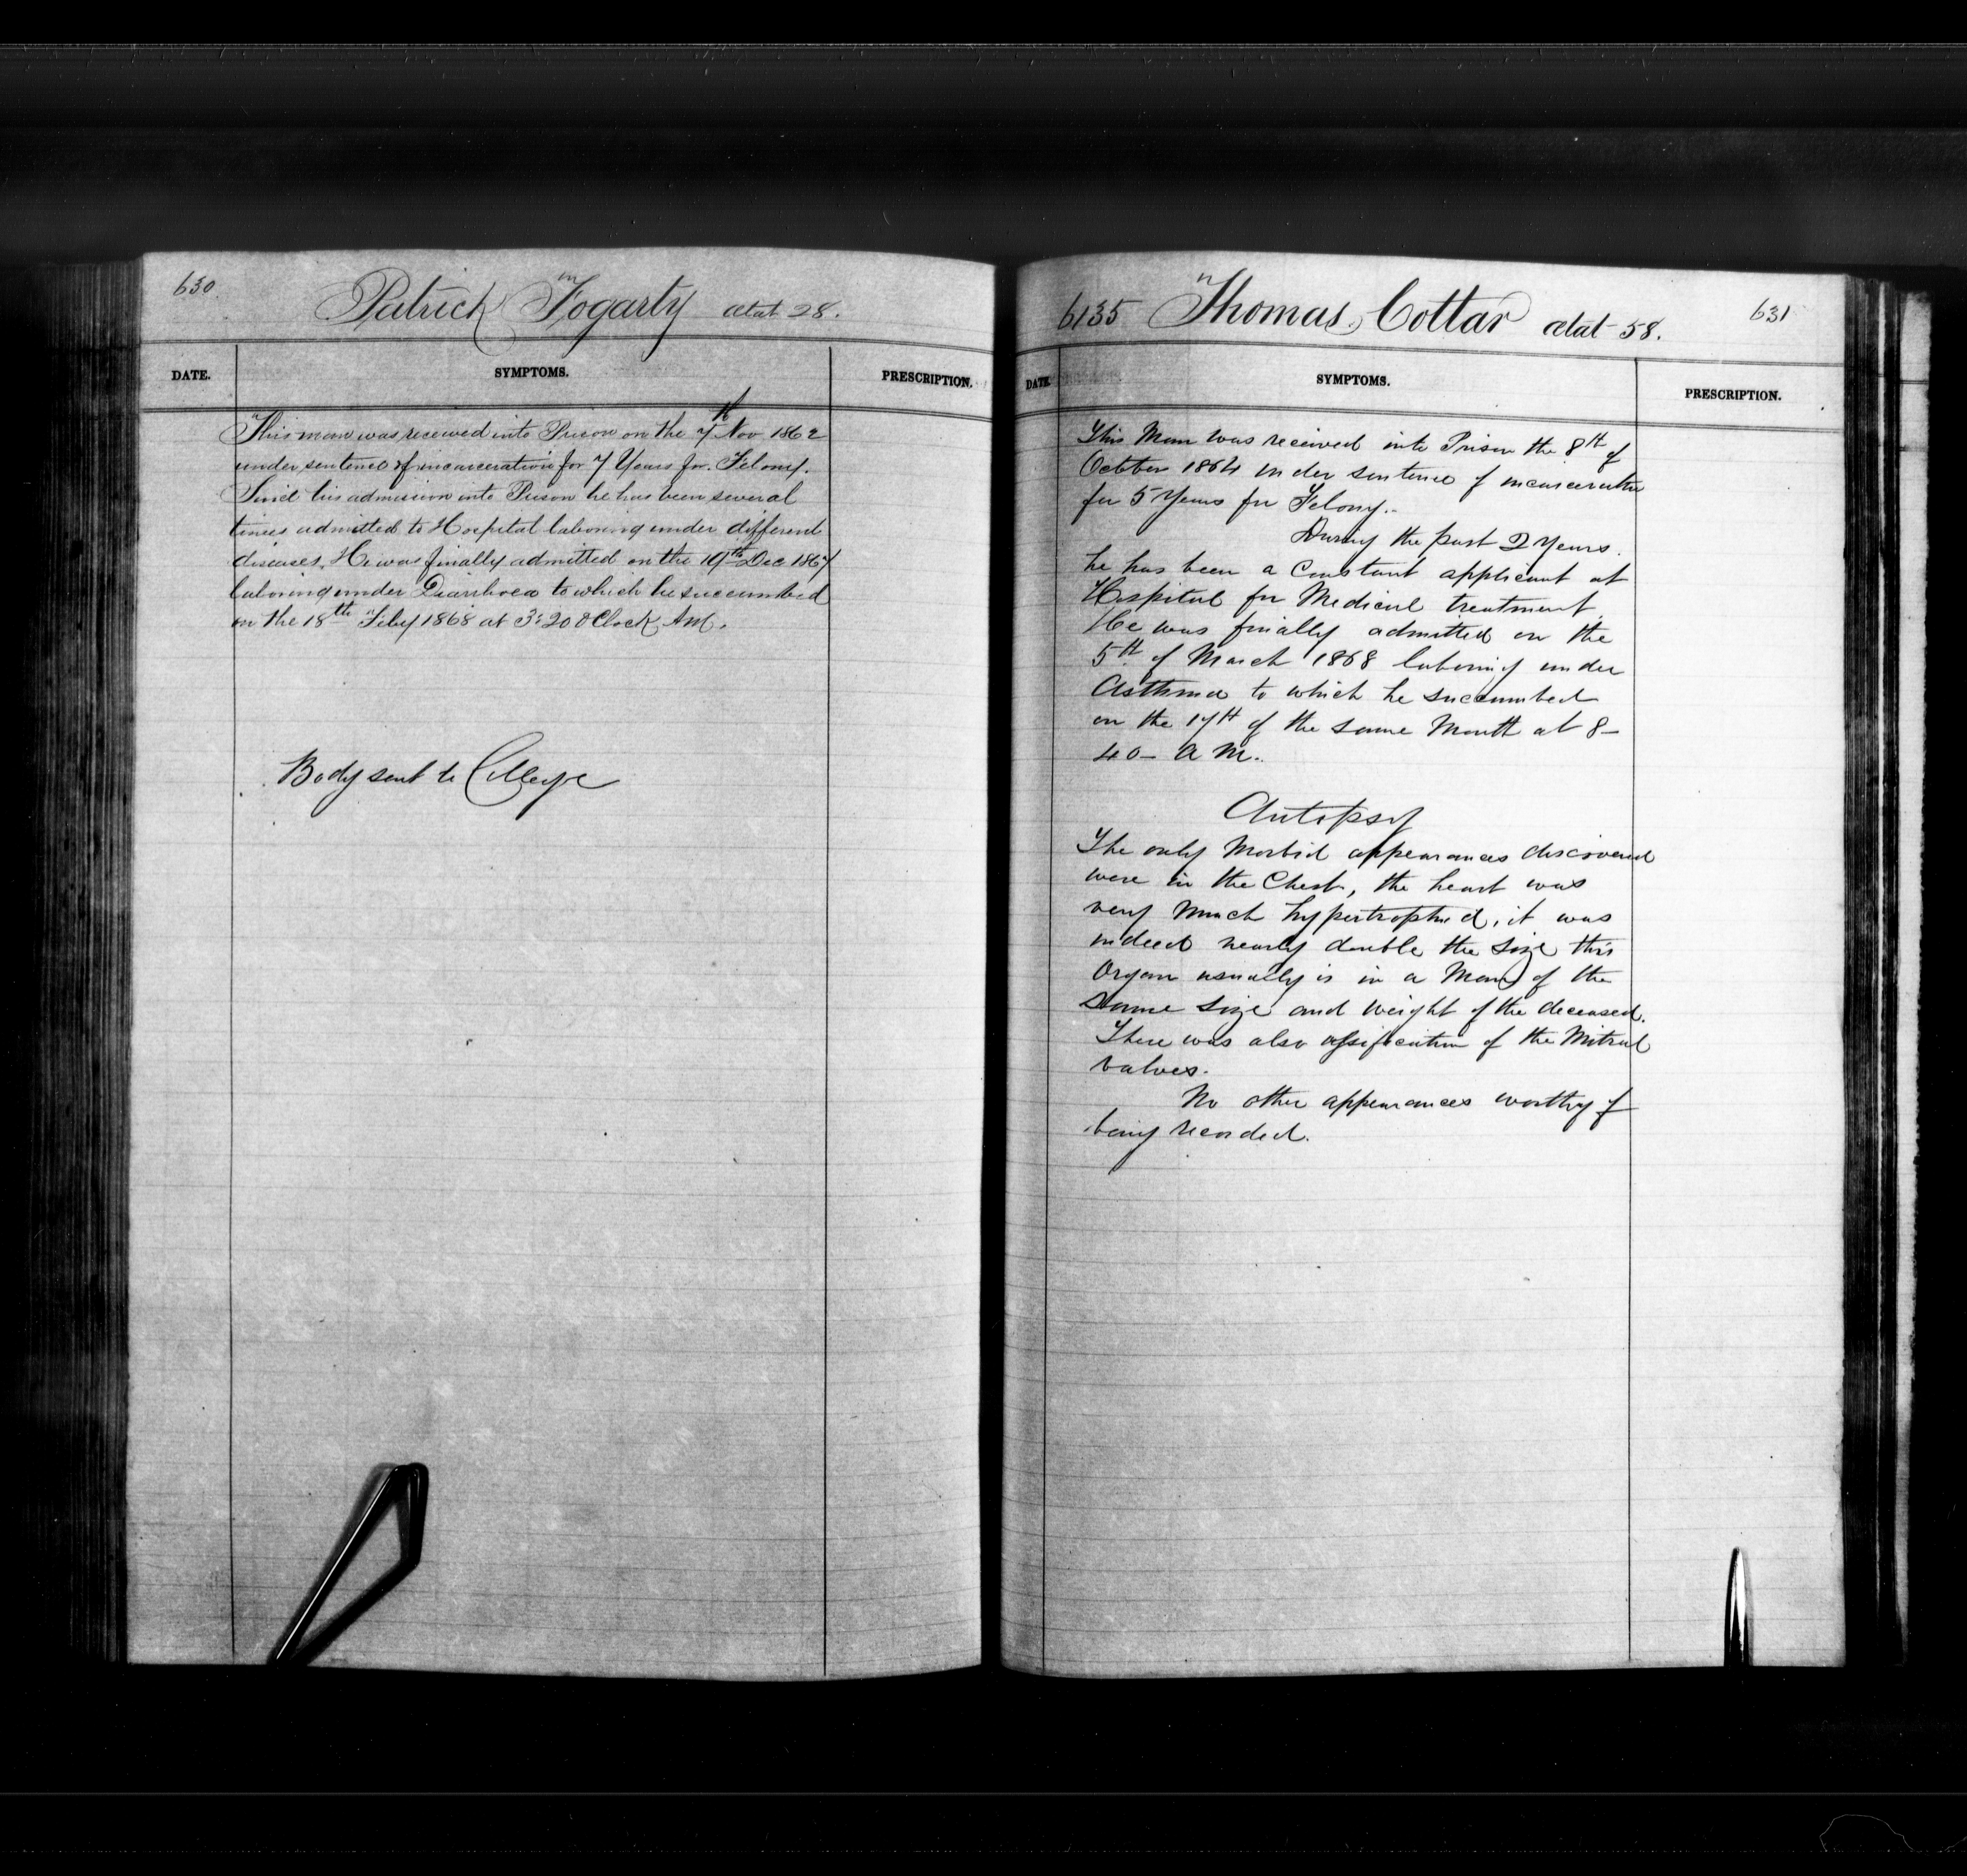 630
Patrick Fogarty ætat 28.
DATE. SYMPTOMS. PRESCRIPTION.
This man was received into Prison on the 7th Nov 1862
under sentence of incarceration for 7 Years for Felony.
Since his admission into Prison he has been several
times admitted to Hospital laboring under different
diseases. He was finally admitted on the 19th Dec 1867
laboring under Diarrhoea to which he succumbed
on the 18th Feby 1868 at 3:20 O Clock AM.
Body sent to College
6135 Thomas Cottar ætat 58.
631
DATE. SYMPTOMS. PRESCRIPTION.
This Man was received into Prison the 8th of
October 1864 under sentence of incarceration
for 5 Years for Felony.
During the past 2 Years
he has been a Constant applicant at
Hospital for Medical treatment.
He was finally admitted on the
5th of March 1868 laboring under
Asthma to which he succumbed
on the 17th of the same Month at 8-
40- A M.
Autopsy
The only Morbid appearances discovered
were in the Chest, the heart was
very much hypertrophied, it was
indeed nearly double the size this
Organ usually is in a Man of the
Same size and weight of the deceased.
There was also ossification of the Mitral
valves.
No other appearances worthy of
being recorded.